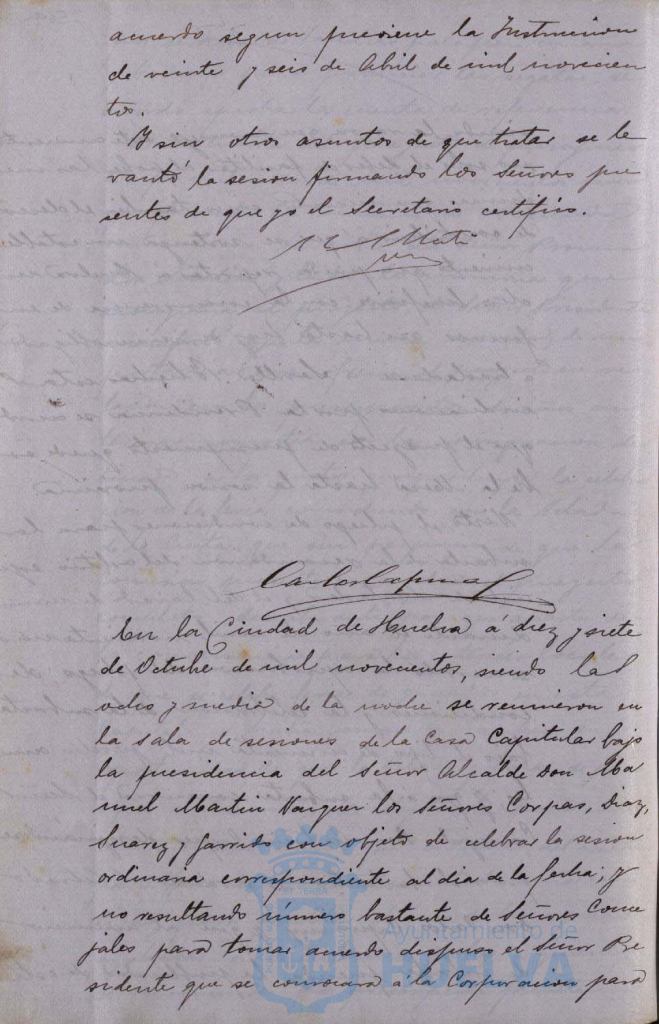 acuerdo segun previene la Instruccion
de veinte y seis de Abril de mil novecien
tos.
Y sin otros asuntos de que tratar se le
vantó la sesion firmando los Señores pre
sentes de que yo el Secretario certifico.
En la Ciudad de Huelva á diez y siete
de Octubre de mil novecientos, siendo las
ocho y media de la noche se reunieron en
la sala de sesiones de la Casa Capitular bajo
la presidencia del Señor Alcalde Don Ma
nuel Martin Vazquez los Señores Corpas, Diaz,
Suarez y Garrido con objeto de celebrar la sesion
ordinaria correspondiente al dia de la fecha; y
no resultando número bastante de Señores Conce
jales para tomar acuerdo dispuso el Señor Pre
sidente que se convocara a la Corporacion para
Ayuntamiento de
HUELVA